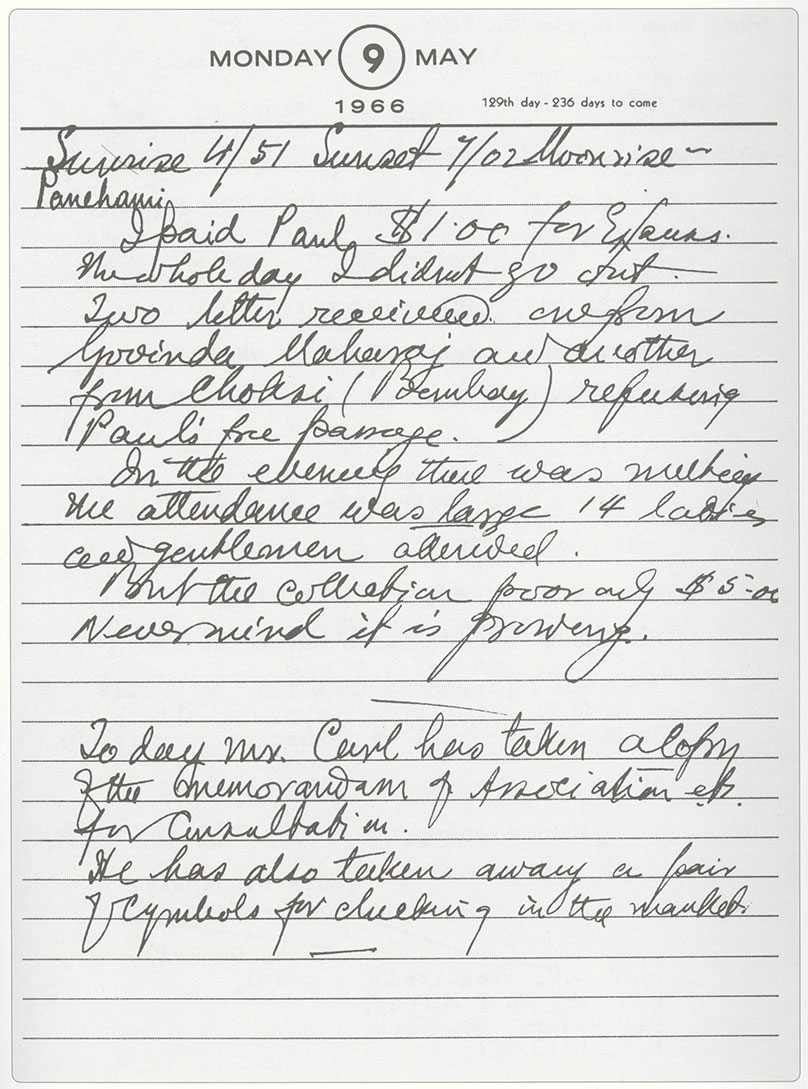 MONDAY 9 MAY
1966
129th day - 236 days to come
Sunrise 4/51 Sunset 7/02 Moonrise —
Panchami
I paid Paul $1.00 for
The whole day I didnt go out —
Two letter received one from
Govinda Maharaj and another
from Choksi (Bombay) refusing
Paul's free passage.
In the evening there was meeting
The attendance was large 14 ladies
and gentlemen attended.
But the collection poor only $5-00
Nevermind it is growing.
Today Mr. Carl has taken a copy
of the memorandam of Association etc.
for Consultation.
He has also taken away a pair
of Cymbols for checking in the market.